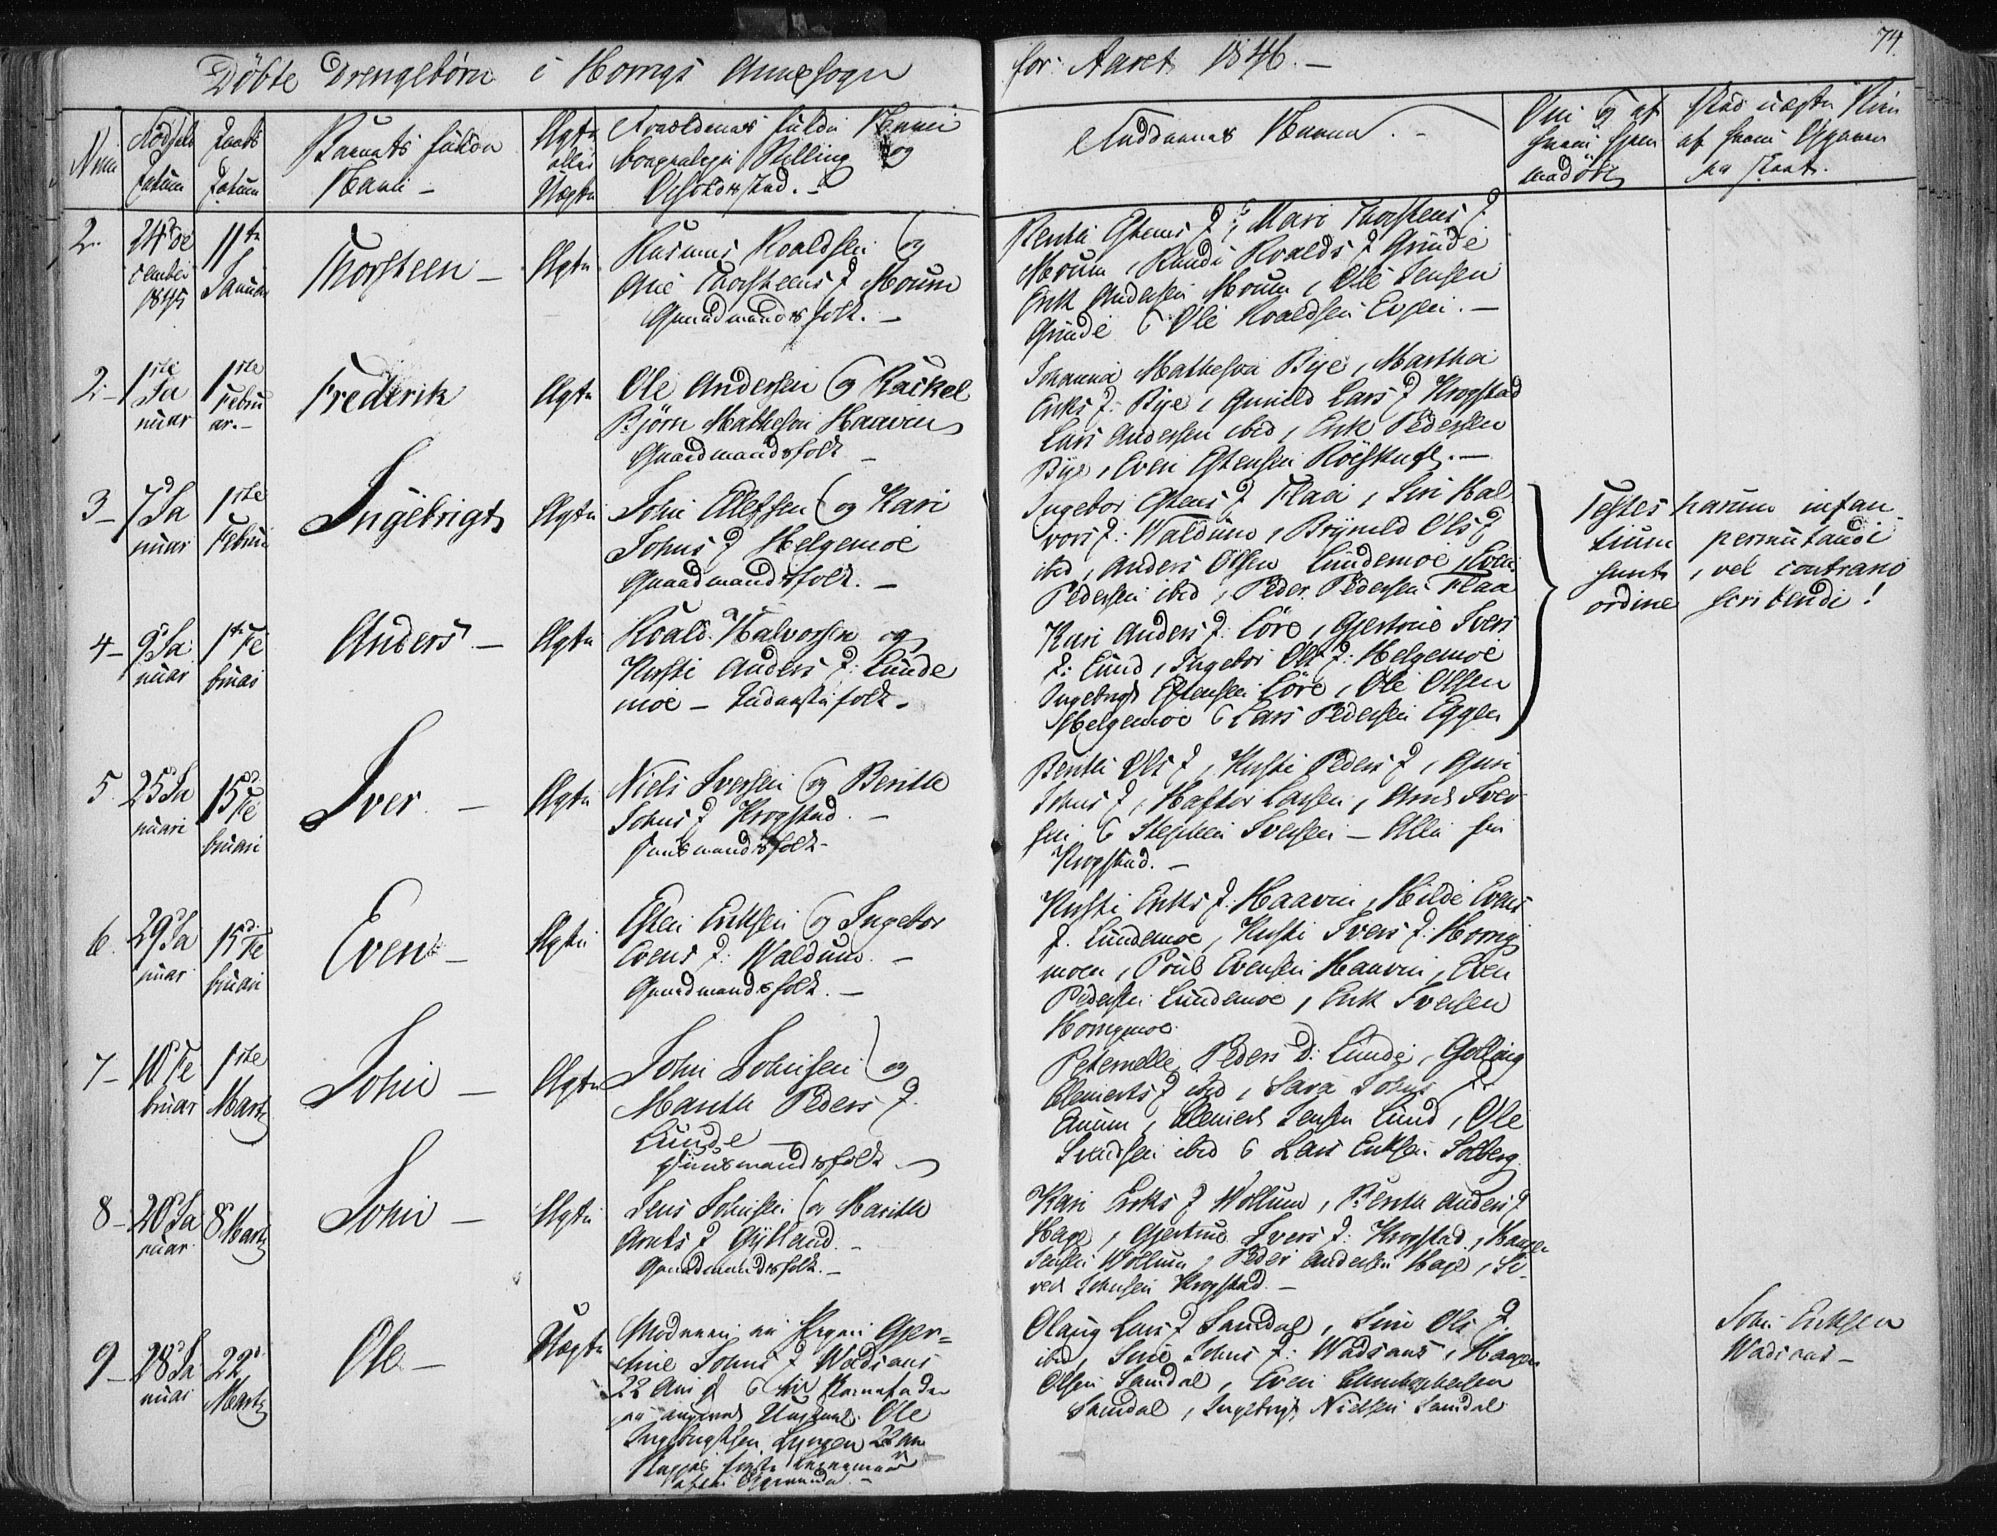 Döbte Drengebörn i Horrigs Annexsogn for Aaret 1846. –
74
Num
Fødsels Datum
Daabs Datum
Barnets fulde Navn –
Ægte eller Uægte
Forældrenes fulde Navne og
borgerlige Stilling
Opholdssted. –
Faddernes Navne. –
2.
24de
cember
1845
11te
Januar
Thorsteen –
Ægte
Rasmus Roaldsen og
Ane Thorsteens D Moum
Gaardmandsfolk. –
Moum, Randi Roalds D Grinde
Erik Andersen Moum, Ole Jensen
Grinde & Ole Roaldsen
2 –
1ste
Ja
nuar
1ste
Febru
ar. –
Frederik
Ægte
Ole Andersen og Rackel
Björn Mathesen Haaven
Gaardmandsfolk –
Johanna Mathesen Bye, Martha
Eriks D: Bye, Gunild Lars D Krogstad
Lars Andersen ibid, Erik Pedersen
Bye, Even Estensen
3 –
7d Ja
nuar
1ste
Februar
Ingebrigt
Ægte
John Ellefsen og Kari
Johns D Helgemoe
Gaardmandsfolk. –
Ingebor Estens D Flaa, Siri Hal
vors D: Waldum, Brynild Ols D
ibid, Anders Olsen Lundemoe, Even
Pedersen ibid, Peder Pedersen Flaa
Testes harum infan
tium permutandi
sunt, vel contrario
ordine scribendi!
4 –
9d Ja
nuar
1ste Fe
bruar
Anders –
Ægte
Roald Halvorsen og
Kirsti Anders D: Lunde
moe – Inderstefolk.
Kari Anders D: Löre, Gjertrud Ivers
D: Lund, Ingebor Ols D: Helgemoe
Ingebrigt Estensen Löre, Ole Olsen
Helgemoe & Lars Pedersen Eggen
5.
25d Ja
nuari
15d
Fe
bruari
Iver –
Ægte
Niels Iversen og Berith
Johns D Krogstad. –
Huusmandsfolk –
Berith Ols D, Kirsti Peders D, Guri
Johns D, Haftor Larsen, Arnt Iver
sen & Stephen Iversen – Alle fra
Krogstad. –
6.
29d Ja
nuar
15d
Fe
bruari
Even –
Ægte
Esten Eriksen og Ingebor
Evens D: Waldum. –
Gaardmandsfolk. –
Kirsti Eriks D: Haaven, Hilde Evens
D. Lundemoe, Kirsti Ivers D: Horrig
moen, Povel Evensen Haaven, Even
Pedersen Lundemoe, Erik Iversen
Horrigmoe.
7 –
10d Fe
bruar
1ste
Marts
John –
Ægte
John Johnsen og
Marith Peders D.
Lunde –
Huusmandsfolk –
Peternelle Peders D: Lunde,
Clements D ibid, Sara Johns D:
Clement Jensen Lund, Ole
ibid & Lars Eriksen Solberg.
8 –
20d Ja
nuar.
8d Marts
John –
Ægte
Jens Johnsen og Marith
Arnts D Gylland. –
Gaardmandsfolk. –
Kari Eriks D Wollum, Berith Anders D
Hage, Gjertrud Ivers D: Krogstad,
Jensen Wollum, Peder Andersen Hage, Si
vert Johnsen Krogstad. –
9 –
28d Ja
nuar
22d
Marts
Ole –
Uægte
Moderen er Pigen Gjer=
trine Johns D Wadsaas
22 Aar & til Barnefader
er angivet Ungkarl Ole
Ingebrigtsen 22 Aar
Olaug Lars D Samdal, Siri Ols D.
ibid, Siri Johns D. Wadsaas, Haagen
Olsen Samdal, Even Christophersen
Samdal, Ingebrigt Nielsen Samdal
John Eriksen
Wadsaas –